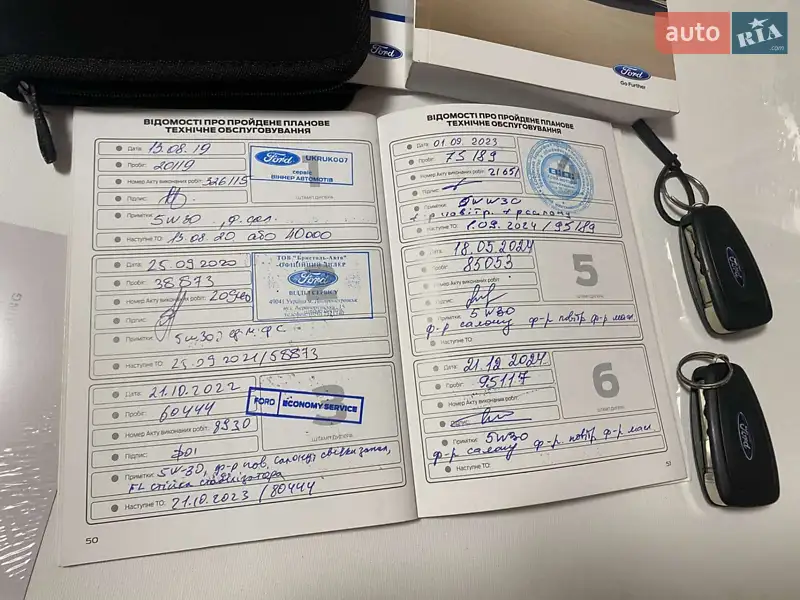 auto RIA.com
Ford
Ford
Go Further
ВІДОМОСТІ ПРО ПРОЙДЕНЕ ПЛАНОВЕ
ТЕХНІЧНЕ ОБСЛУГОВУВАННЯ
Дата: 13.08.19
Пробіг: 20119
Номер Акту виконаних робіт: 326115
Підпис:
Ford UKRUK007
сервіс
ВІННЕР АВТОМОТІВ
1
ШТАМП ДИЛЕРА
Примітки:
5W30, ф. сал.
Наступне ТО: 13.08.20 або 40000
Дата: 25.09.2020
Пробіг: 38873
Номер Акту виконаних робіт:
Підпис:
ТОВ "Бристоль-Авто"
ОФІЦІЙНИЙ ДИЛЕР
Ford
ВІДДІЛ СЕРВІСУ
Примітки:
5W30
Наступне ТО: 25.09.2021/58873
Дата: 21.10.2022
Пробіг: 60444
Номер Акту виконаних робіт: 8930
Підпис:
FORD ECONOMY SERVICE
3
ШТАМП ДИЛЕРА
Примітки: 5W-30, ф-р пов, салону,
FL стійка стабілізатора
Наступне ТО: 21.10.2023 / 80444
50
ВІДОМОСТІ ПРО ПРОЙДЕНЕ ПЛАНОВЕ
ТЕХНІЧНЕ ОБСЛУГОВУВАННЯ
Дата: 01.09.2023
Пробіг: 75189
Номер Акту виконаних робіт: 21651
Підпис:
4
Примітки: 5W30
ф-р повітр. ф-р салону
Наступне ТО: 1.09.2024 / 95189
Дата: 18.05.2024
Пробіг: 85053
Номер Акту виконаних робіт:
Підпис:
5
ШТАМП ДИЛЕРА
Примітки: 5W30
ф-р салону ф-р повітр ф-р масл
Наступне ТО:
Дата: 21.12.2024
Пробіг: 95117
Номер Акту виконаних робіт:
6
ШТАМП ДИЛЕРА
Примітки: 5W30
ф-р салону ф-р повітр ф-р масл
Наступне ТО:
51
Ford
Ford